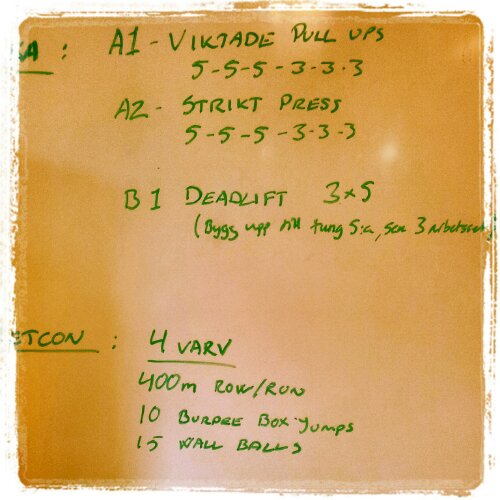 A1 - VIKTADE PULL UPS
5-5-5-3-3-3
A2 - STRIKT PRESS
5-5-5-3-3-3
B1 DEADLIFT 3x5
(Bygg upp till tung 5:a, sen 3
ETCON : 4 VARV
400m ROW/RUN
10 BURPEE BOX JUMPS
15 WALL BALLS